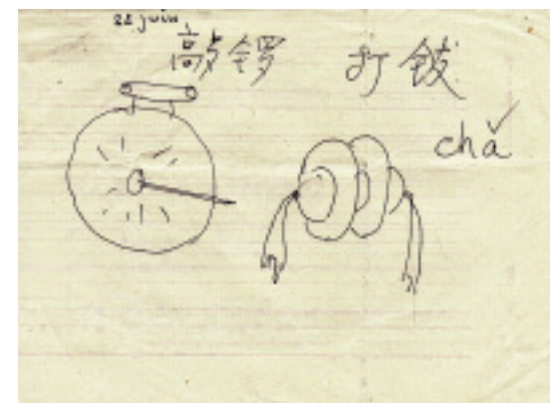 22 juin
敲锣 打钹
chǎ